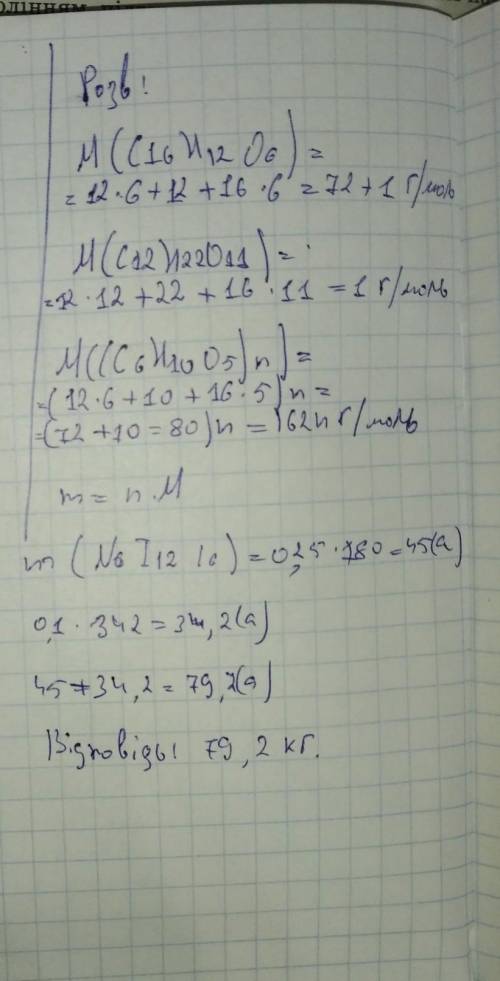 Розв!
M(C16H12O6) =
= 12·6+12+16·6 = 72+1 г/моль
M(C12H22O11) =
= 12·12+22+16·11 = 1 г/моль
M((C6H10O5)n) =
=(12·6+10+16·5)n =
=(72+10=80)n = 162n г/моль
m = n·M
m (N6 I12 1c) = 0,25·180=45(а)
0,1·342=34,2(а)
45+34,2=79,2(а)
Відповідь! 79,2 кг.